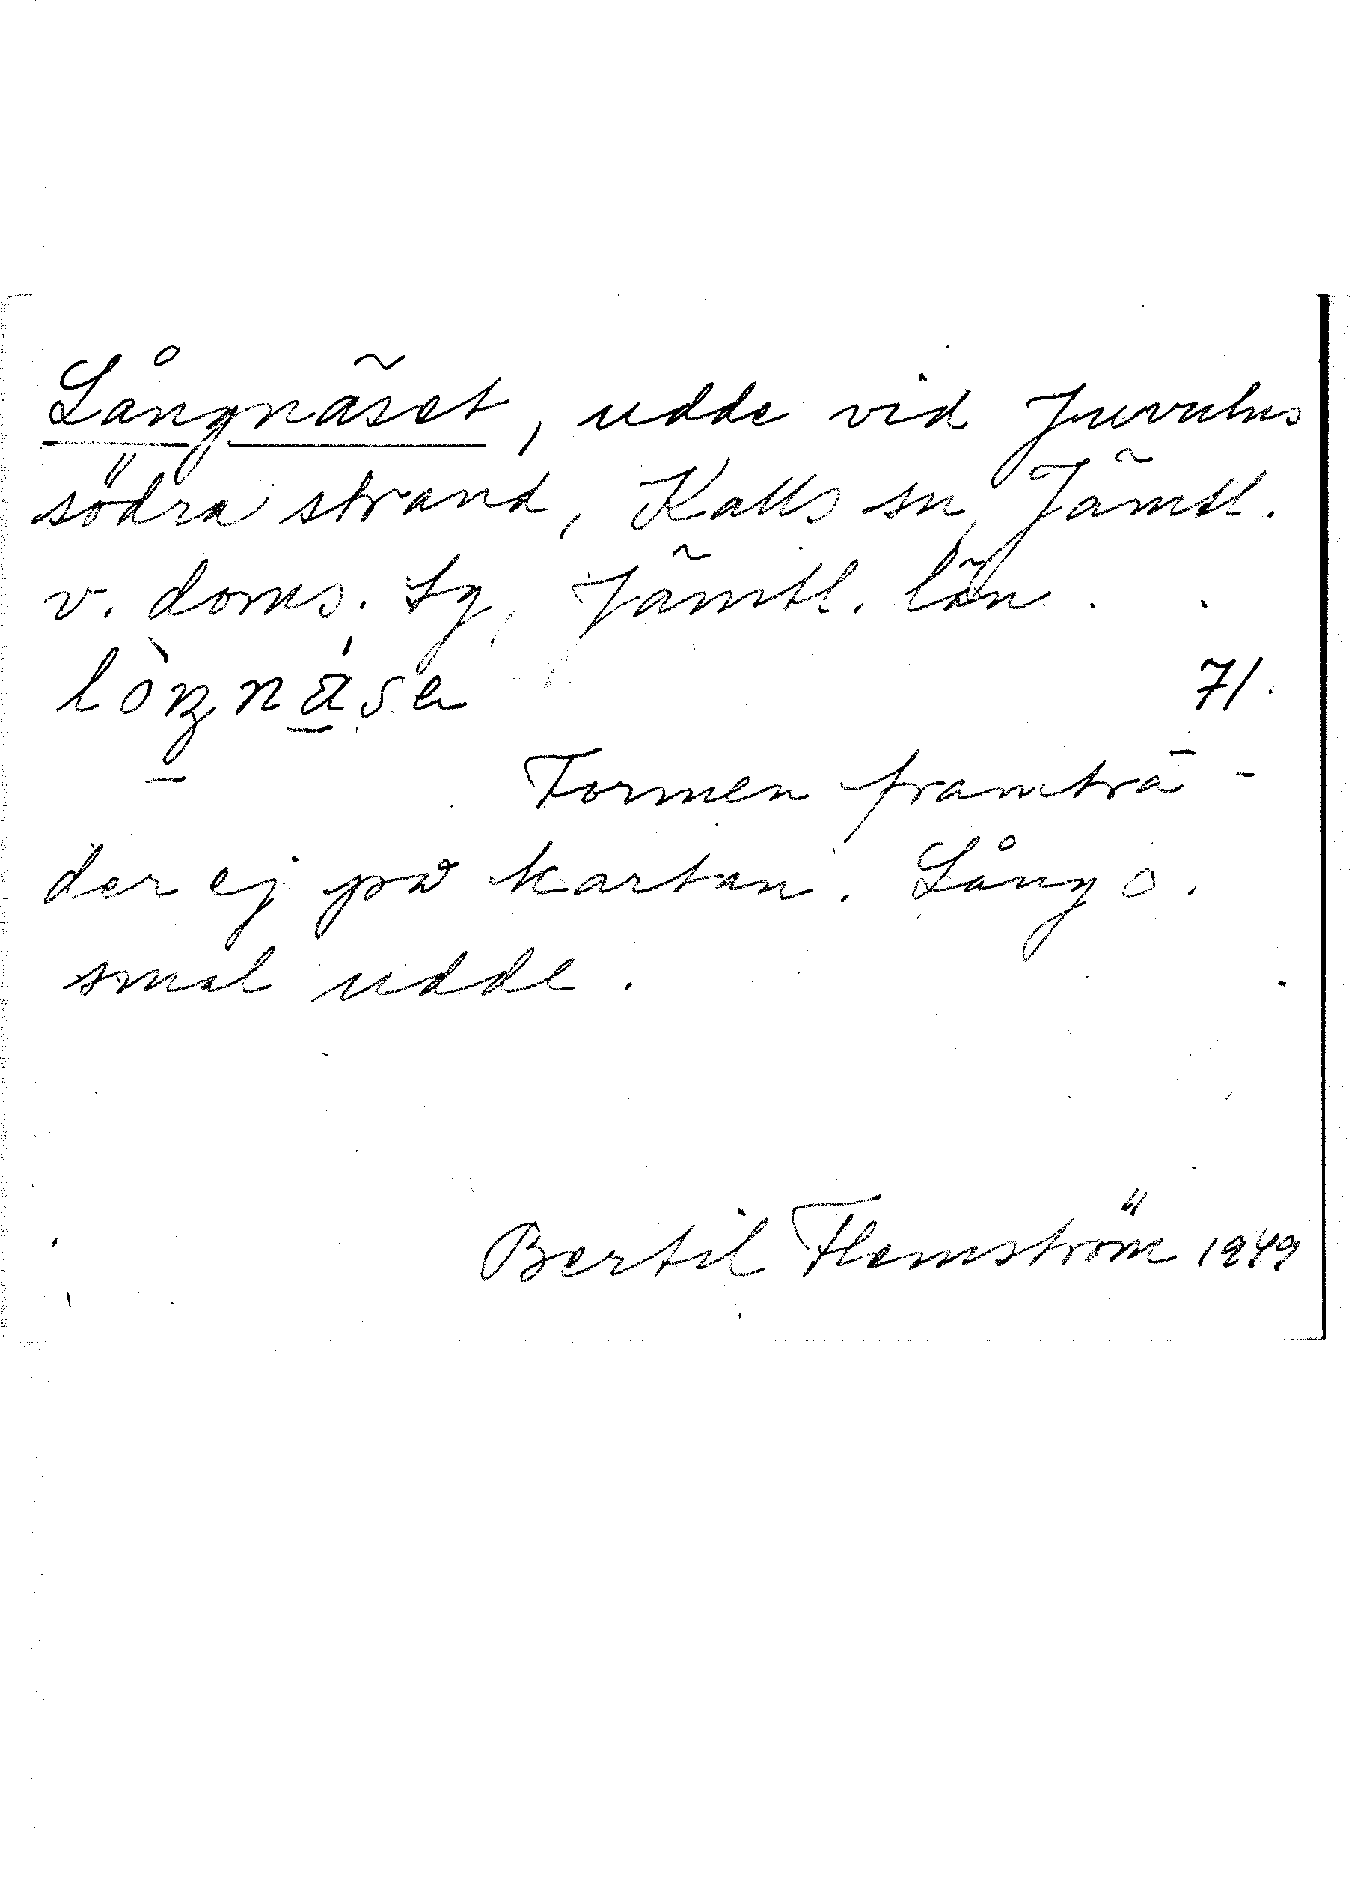 Långnäset, udde vid Juvulns
södra strand, Kalls sn, Jämtl.
v. doms. Lg, Jämtl. län.
71.
Formen framträ-
der ej på kartan. Lång o.
smal udde.
Bertil Flemström 1949